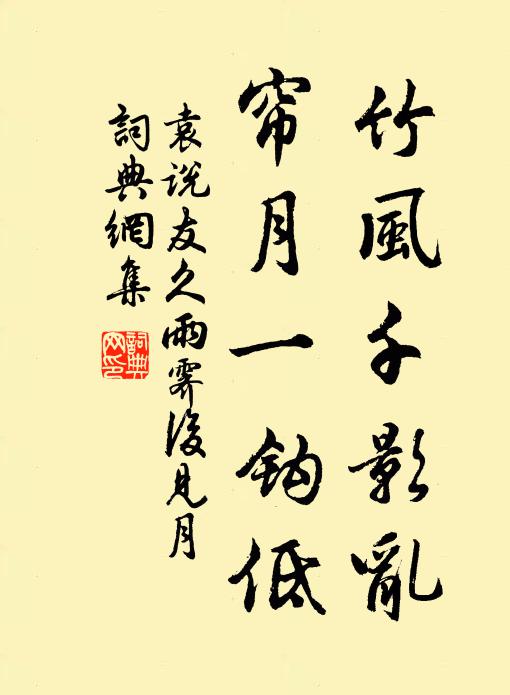 竹風千影亂
帘月一鈎低
袁説友久雨霽後見月
詞典網集
詞典网印